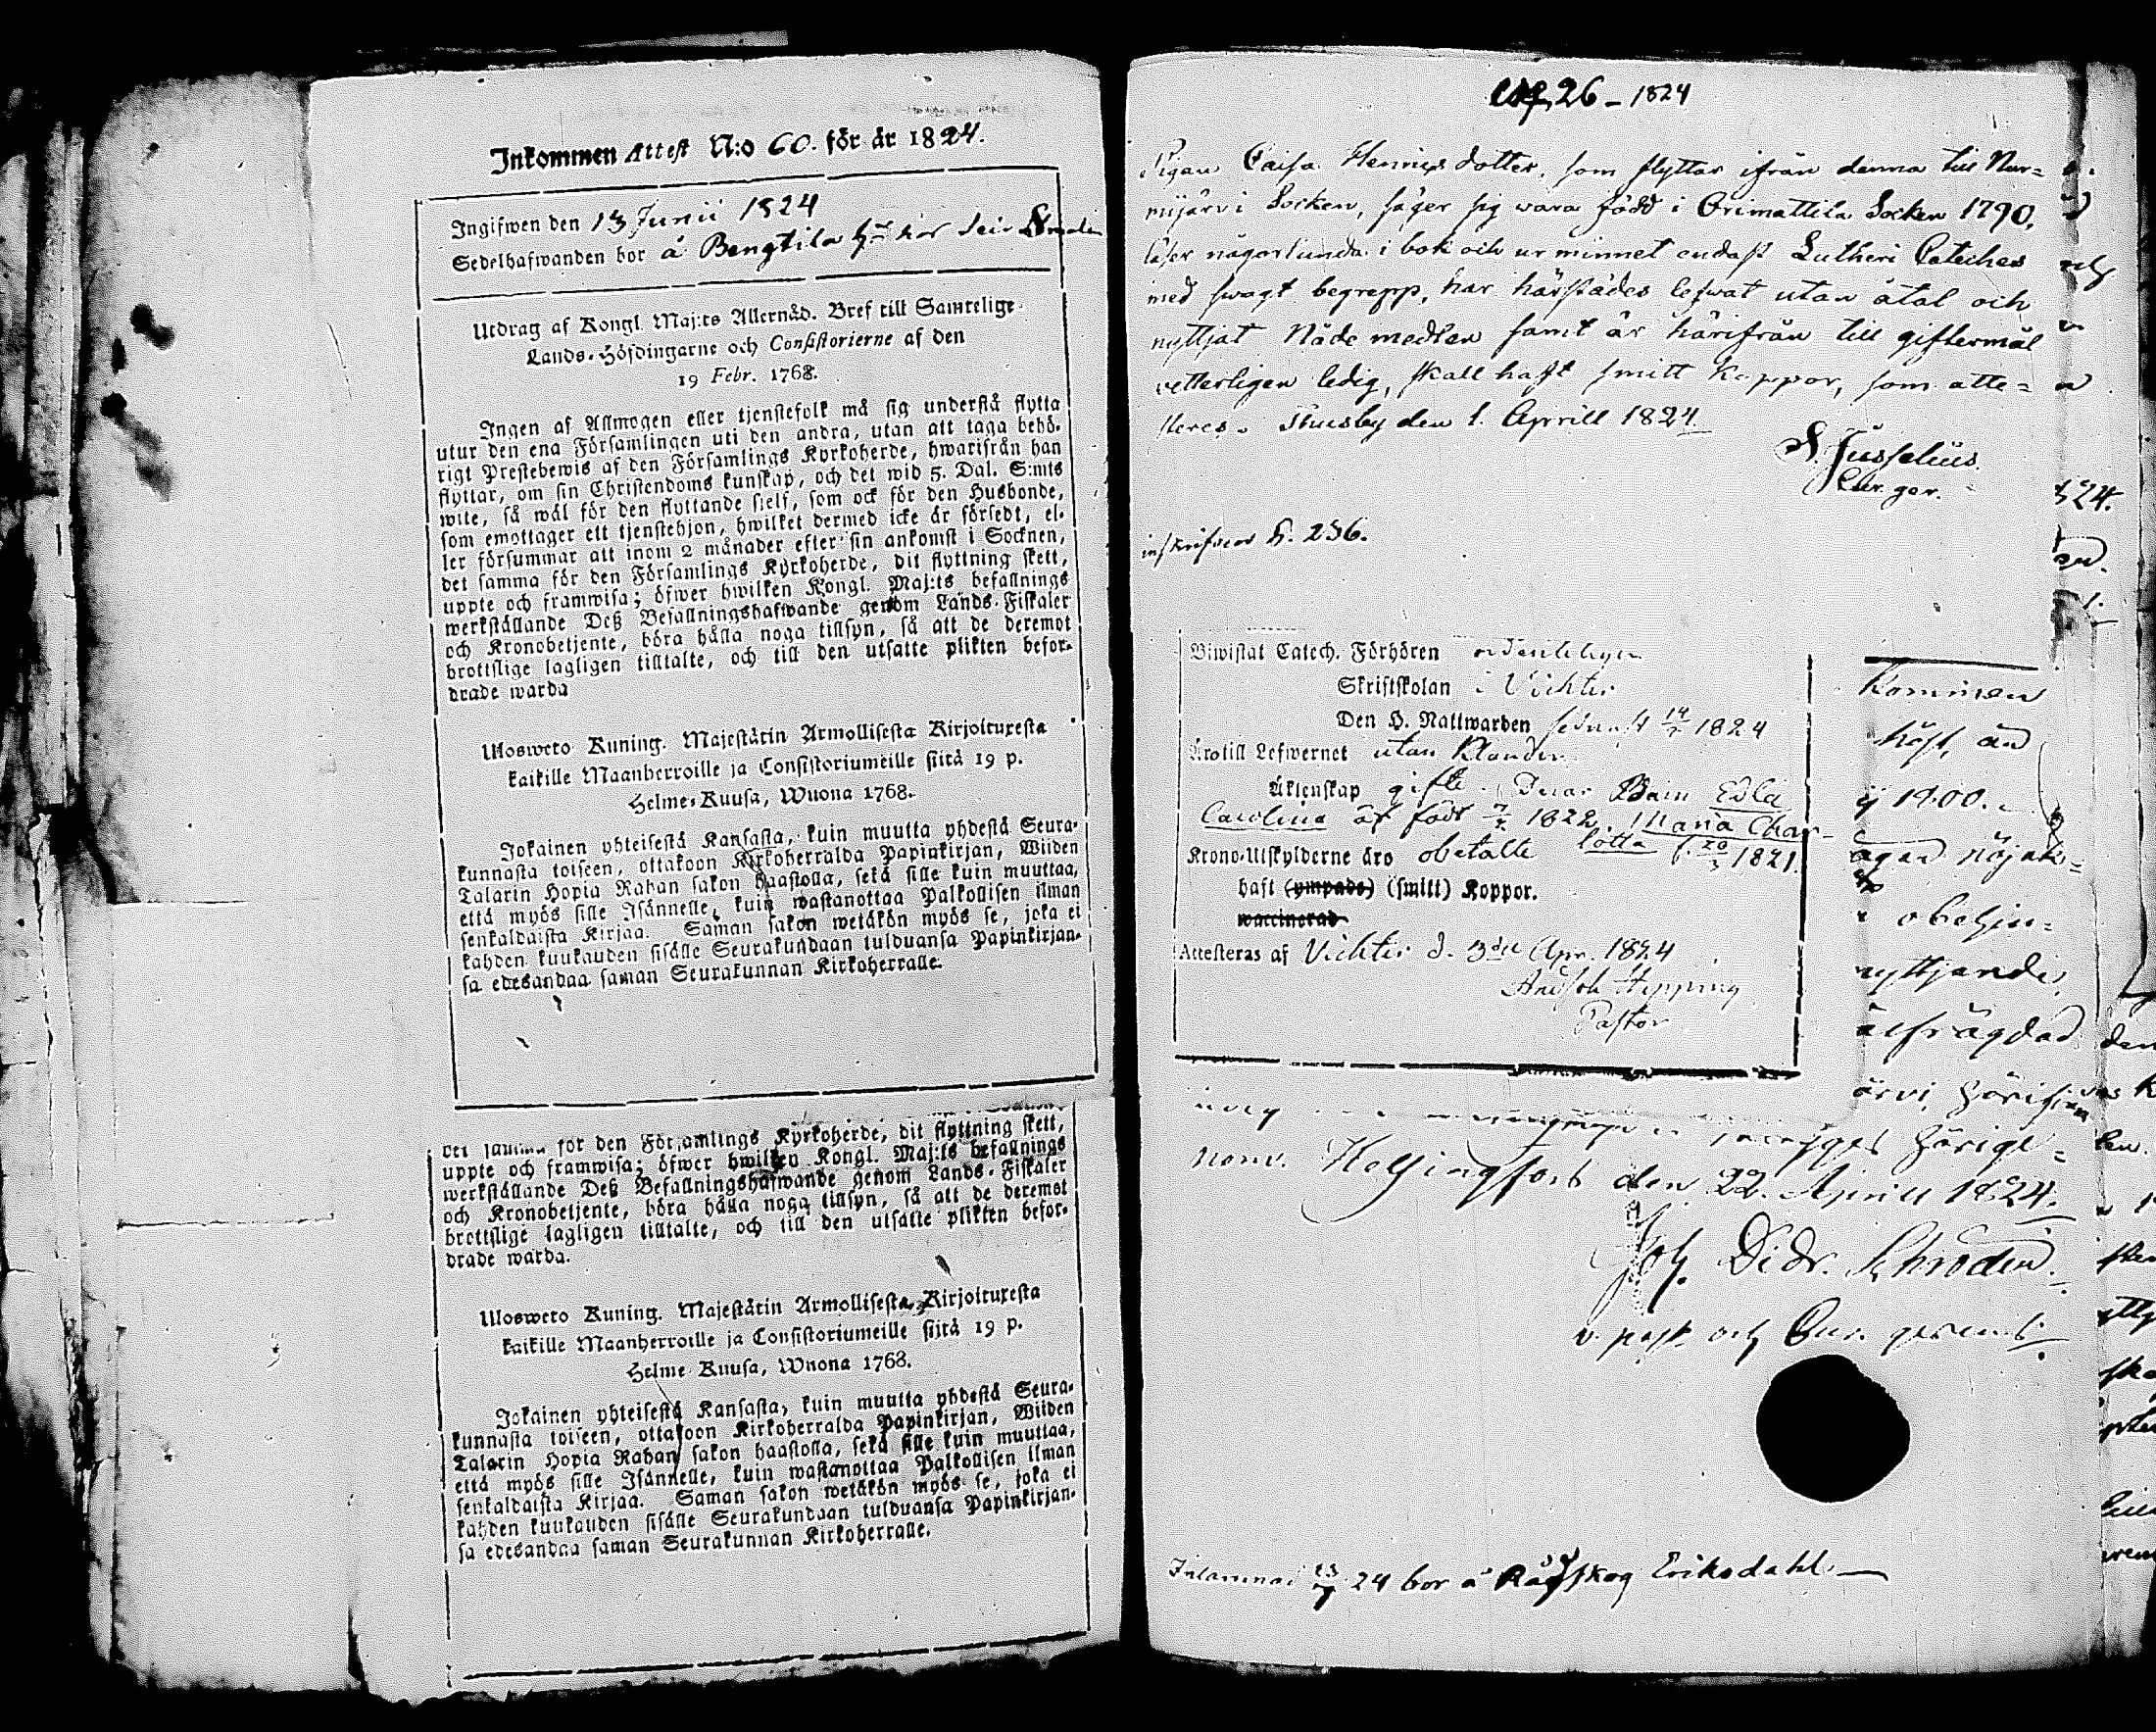 Inkommen Attest N:o 60. för år 1824.
Ingifwen den 13 Junii 1824
Sedelhafwanden bor å Bengtila
Utdrag af Kongl. Maj:ts Allernåd. Bref till Samtelige
Lands-Höfdingarne och Consistorierne af den
19 Febr. 1768.
Ingen af Allmogen eller tjenstefolk må sig understå flytta
utur den ena Församlingen uti den andra, utan att taga behö-
rigt Prestebewis af den Församlings Kyrkoherde, hwarifrån han
flyttar, om sin Christendoms kunskap, och det wid 5. Dal. S:mts
wite, så wäl för den flyttande sielf, som ock för den Husbonde,
som emottager ett tjenstehjon, hwilket dermed icke är försedt, el-
ler försummar att inom 2 månader efter sin ankomst i Socknen,
det samma för den Församlings Kyrkoherde, dit flyttning skett,
uppte och framwisa; öfwer hwilken Kongl. Maj:ts befallnings
werkställande Deß Befallningshafwande genom Lands-Fiskaler
och Kronobetjente, böra hålla noga tillsyn, så att de deremot
brottslige lagligen tilltalte, och till den utsatte plikten befor-
drade warda
Ulosweto Kuning. Majestätin Armollisesta Kirjoituxesta
kaikille Maanherroille ja Consistoriumeille siitä 19 p.
Helme-Kuusa, Wuona 1768.
Jokainen yhteisestä Kansasta, kuin muutta yhdestä Seura-
kunnasta toiseen, ottakoon Kirkoherralda Papinkirjan, Wiiden
Talarin Hopia Rahan sakon haastolla, sekä sille kuin muuttaa,
että myös sille Isännelle, kuin wastanottaa Palkollisen ilman
senkaldaista Kirjaa. Saman sakon wetäkön myös se, joka ei
kahden kuukauden sisälle Seurakundaan tulduansa Papinkirjan-
sa edesandaa saman Seurakunnan Kirkoherralle.
det samma för den Församlings Kyrkoherde, dit flyttning skett,
uppte och framwisa; öfwer hwilken Kongl. Maj:ts befallnings
werkställande Deß Befallningshafwande genom Lands-Fiskaler
och Kronobetjente, böra hålla noga tillsyn, så att de deremot
brottslige lagligen tilltalte, och till den utsatte plikten befor-
drade warda.
Ulosweto Kuning. Majestätin Armollisesta Kirjoituxesta
kaikille Maanherroille ja Consistoriumeille siitä 19 p.
Helme-Kuusa, Wuona 1768.
Jokainen yhteisestä Kansasta, kuin muutta yhdestä Seura-
kunnasta toiseen, ottakoon Kirkoherralda Papinkirjan, Wiiden
Talarin Hopia Rahan sakon haastolla, sekä sille kuin muuttaa,
että myös sille Isännelle, kuin wastanottaa Palkollisen ilman
senkaldaista Kirjaa. Saman sakon wetäkön myös se, joka ei
kahden kuukauden sisälle Seurakundaan tulduansa Papinkirjan-
sa edesandaa saman Seurakunnan Kirkoherralle.
26 - 1824
Pigan Caisa Henricsdotter, som flyttar ifrån denna till Nur=
mijärvi Socken, säger sig wara född i Orimattila Socken 1790,
läser någorlunda i bok och ur minnet endast Lutheri Cateches
med swagt begrepp, har härstädes lefwat utan åtal och
nyttjat Nådemedlen samt är härifrån till giftermål
vetterligen ledig, skall haft smitt Koppor, som atte=
steres. Thusby den 1. Aprill 1824.
Cur. ger.
P. 236.
Biwistat Catech. Förhören ordenteligen
Skriftskolan i Vichtis
Den H. Nattwarden sednast 1824
Ärotill Lefwernet utan Klander
Äktenskap gifte. Deras Barn Edla
Carolina är född 1822. Maria Char-
lotta f. 20/3 1821.
Krono-Utskylderne äro obetalte
haft (ympade) (smitt) Koppor.
waccinerad
Attesteras af Vichtis d. 3die Apr. 1824
Hipping
Pastor
Kommen
höst, än
1800.
nöjak=
nyttjande,
Helsingfors den 22. Aprill 1824.
Joh. Didr.
v. past. och Cur.
Inlämnad 24 bor å Rådskog Eriksdahl